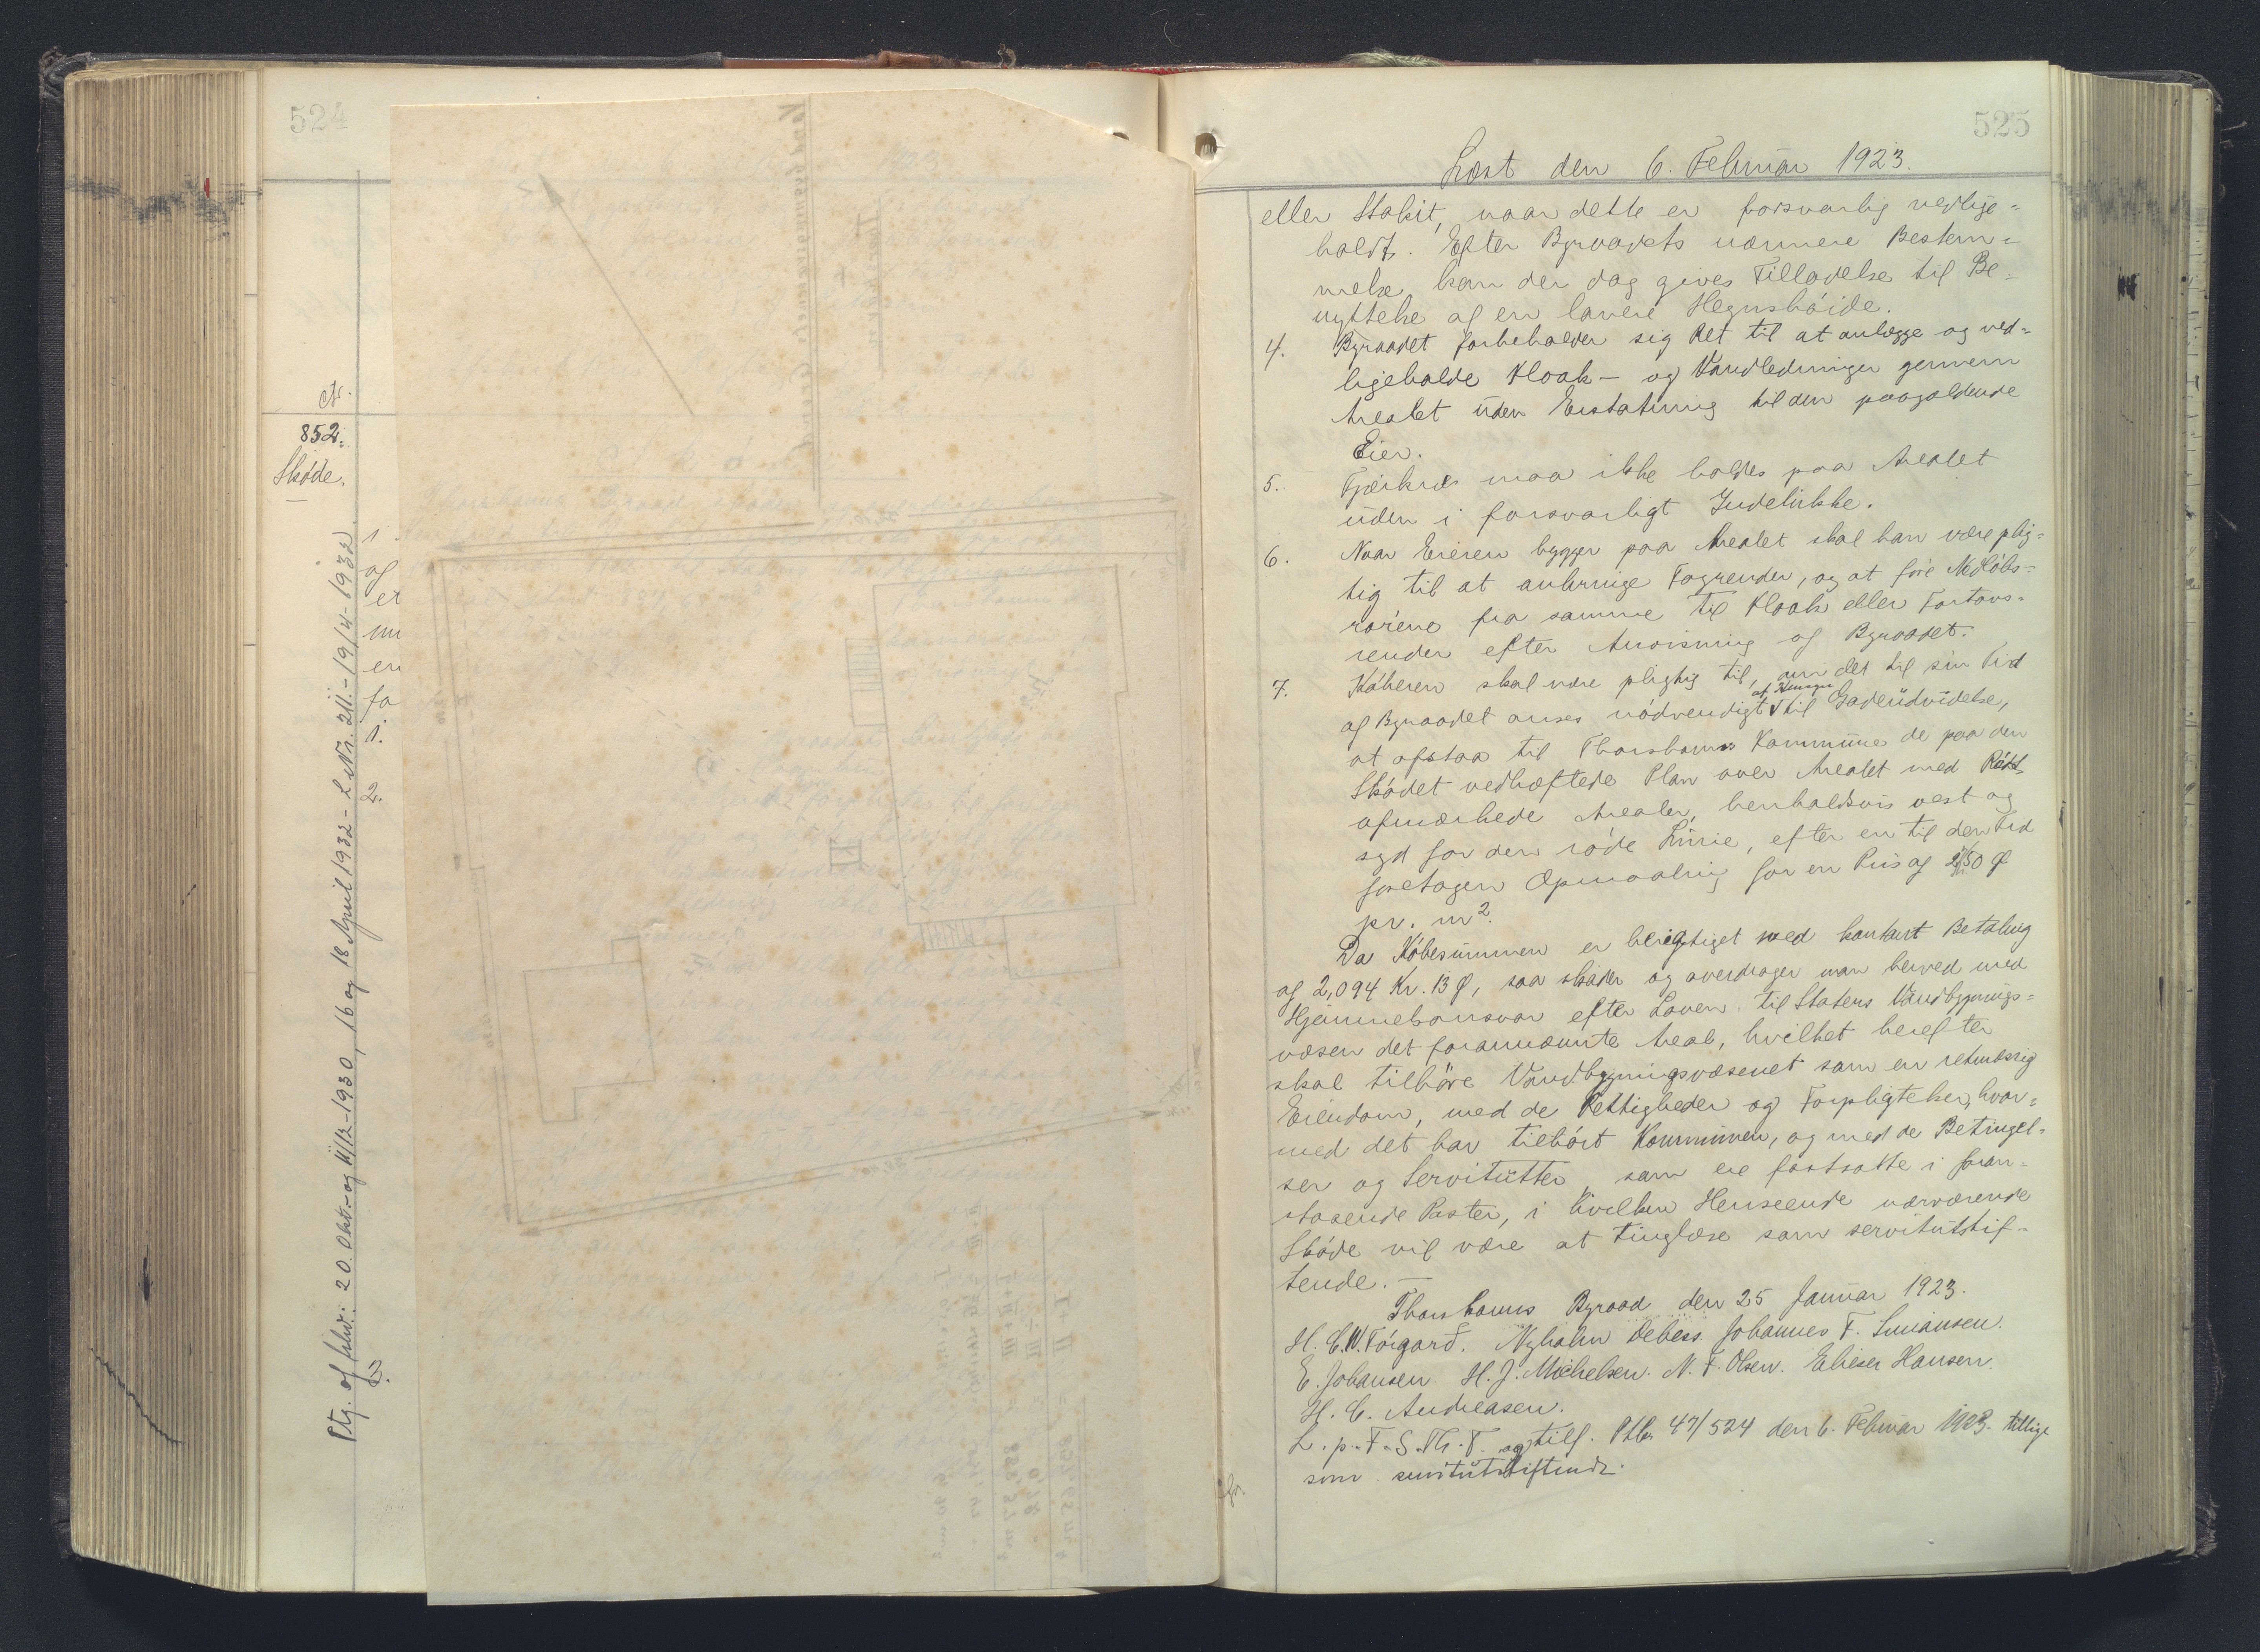 524
Nr.
852.
Skøde.
Ptg. af fuldv: 20. Okt.- og 11/12-1930, 16 og 18 April 1932 - L.Nr. 211.-19/4-1932
1
og
et
nu
en
fa
1.
2.
525
Læst den 6. Februar 1923.
eller Stakit, naar dette er forsvarlig vedlige=
holdt. Efter Byraadets nærmere Bestem=
melse kan der dog gives Tilladelse til Be=
nyttelse af en lavere Hegnshöide.
4. Byraadet forbeholder sig Ret til at anlægge og ved=
ligeholde Kloak- og Vandledninger gennem
Arealet uden Erstatning til den paagældende
Eier.
5. Fjerkræ maa ikke holdes paa Arealet
uden i forsvarligt Indelukke.
6. Naar Eieren bygger paa Arealet skal han være plig=
tig til at anbringe Tagrender, og at före Nedløbs=
rörene fra samme til Kloak eller Fortovs=
render efter Anvisning af Byraadet.
7. Køberen skal være pligtig til, om det til sin Tid
af Byraadet anses nödvendigt af Hensyn til Gadeudvidelse,
at afstaa til Thorshavns Kommune de paa den
Skødet vedhæftede Plan over Arealet med Rödt
afmærkede Arealer, henholdsvis vest og
syd for den röde Linie, efter en til den Tid
foretagen Opmaaling for en Pris af 2 Kr. 50 Ø
pr. m².
Da Købesummen er berigtiget med kontant Betaling
af 2,094 Kr. 13 Ø, saa skøder og overdrager man herved med
Hjemmelsansvar efter Loven til Statens Vandbygnings=
væsen det forannævnte Areal, hvilket herefter
skal tilhöre Vandbygningsvæsenet som en retmæssig
Eiendom, med de Rettigheder og Forpligtelser, hvor=
med det har tilhört Kommunen, og med de Betingel=
ser og Servitutter, som ere fastsatte i foran=
staaende Poster, i hvilken Henseende nærværende
Skøde vil være at tinglæse som servitutstif=
tende. —
Thorshavns Byraad den 25 Januar 1923.
H. C. W. Tórgarð. Nyholm Debess. Johannes F. Simiansen.
E. Johansen. H. J. Michelsen. N. F. Olsen. Elieser Hansen.
H. C. Andreasen.
L. p. F. S. Th. T. og tilf. Ptb. 47/524 den 6. Februar 1923. tillige
som servitutstiftende.